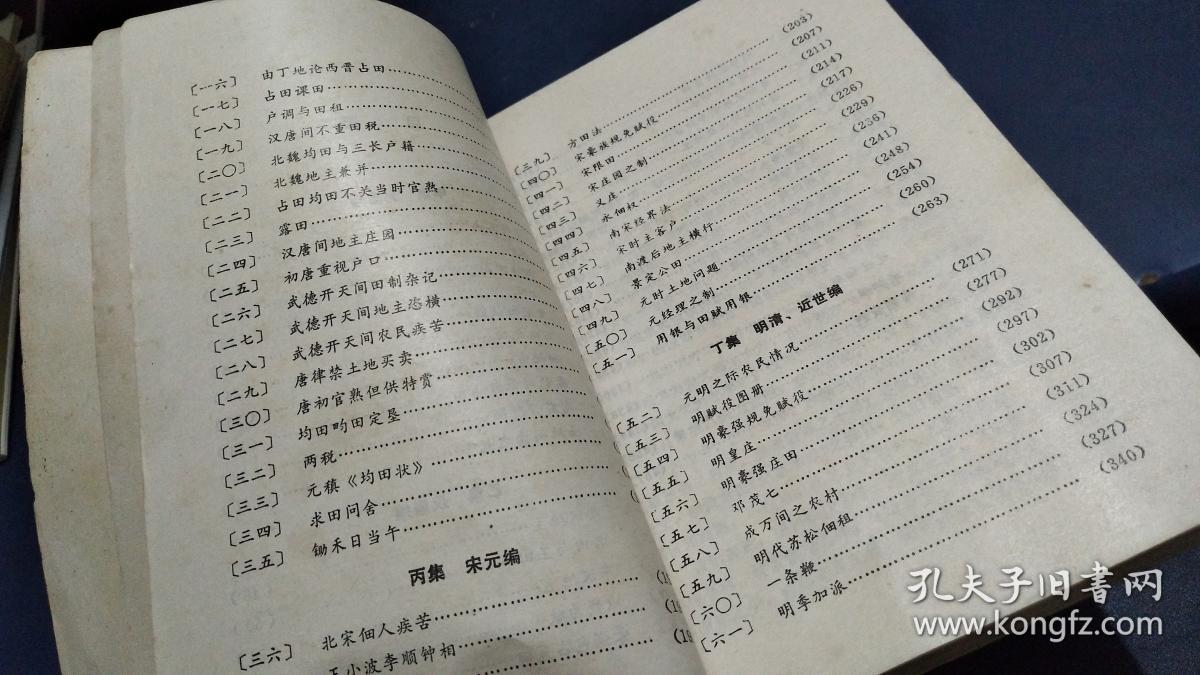 [一六] 由丁地论西晋占田
[一七] 占田课田
[一八] 户调与田租
[一九] 汉唐间不重田税
[二〇] 北魏均田与三长户籍
[二一] 北魏地主兼并
[二二] 占田均田不关当时官熟
[二三] 露田
[二四] 汉唐间地主庄园
[二五] 初唐重视户口
[二六] 武德开天间田制杂记
[二七] 武德开天间地主恣横
[二八] 武德开天间农民疾苦
[二九] 唐律禁土地买卖
[三〇] 唐初官熟但供特赏
[三一] 均田畇田定垦
[三二] 两税
[三三] 元稹《均田状》
[三四] 求田问舍
[三五] 锄禾日当午
丙集 宋元编
[三六] 北宋佃人疾苦
王小波李顺钟相
[三九] 方田法 (203)
[四〇] 宋豪族规免赋役 (207)
[四一] 宋限田 (211)
[四二] 宋庄园之制 (214)
[四三] 义庄 (217)
[四四] 永佃权 (226)
[四五] 南宋经界法 (229)
[四六] 宋时主客户 (236)
[四七] 南渡后地主横行 (241)
[四八] 景定公田 (243)
[四九] 元时土地问题 (254)
[五〇] 元经理之制 (260)
[五一] 用银与田赋用银 (263)
丁集 明清、近世编
[五二] 元明之际农民情况 (271)
[五三] 明赋役图册 (277)
[五四] 明豪强规免赋役 (292)
[五五] 明皇庄 (297)
[五六] 明豪强庄田 (302)
[五七] 邓茂七 (307)
[五八] 成万间之农村 (311)
[五九] 明代苏松佃租 (324)
[六〇] 一条鞭 (327)
[六一] 明季加派 (340)
孔夫子旧书网
www.kongfz.com